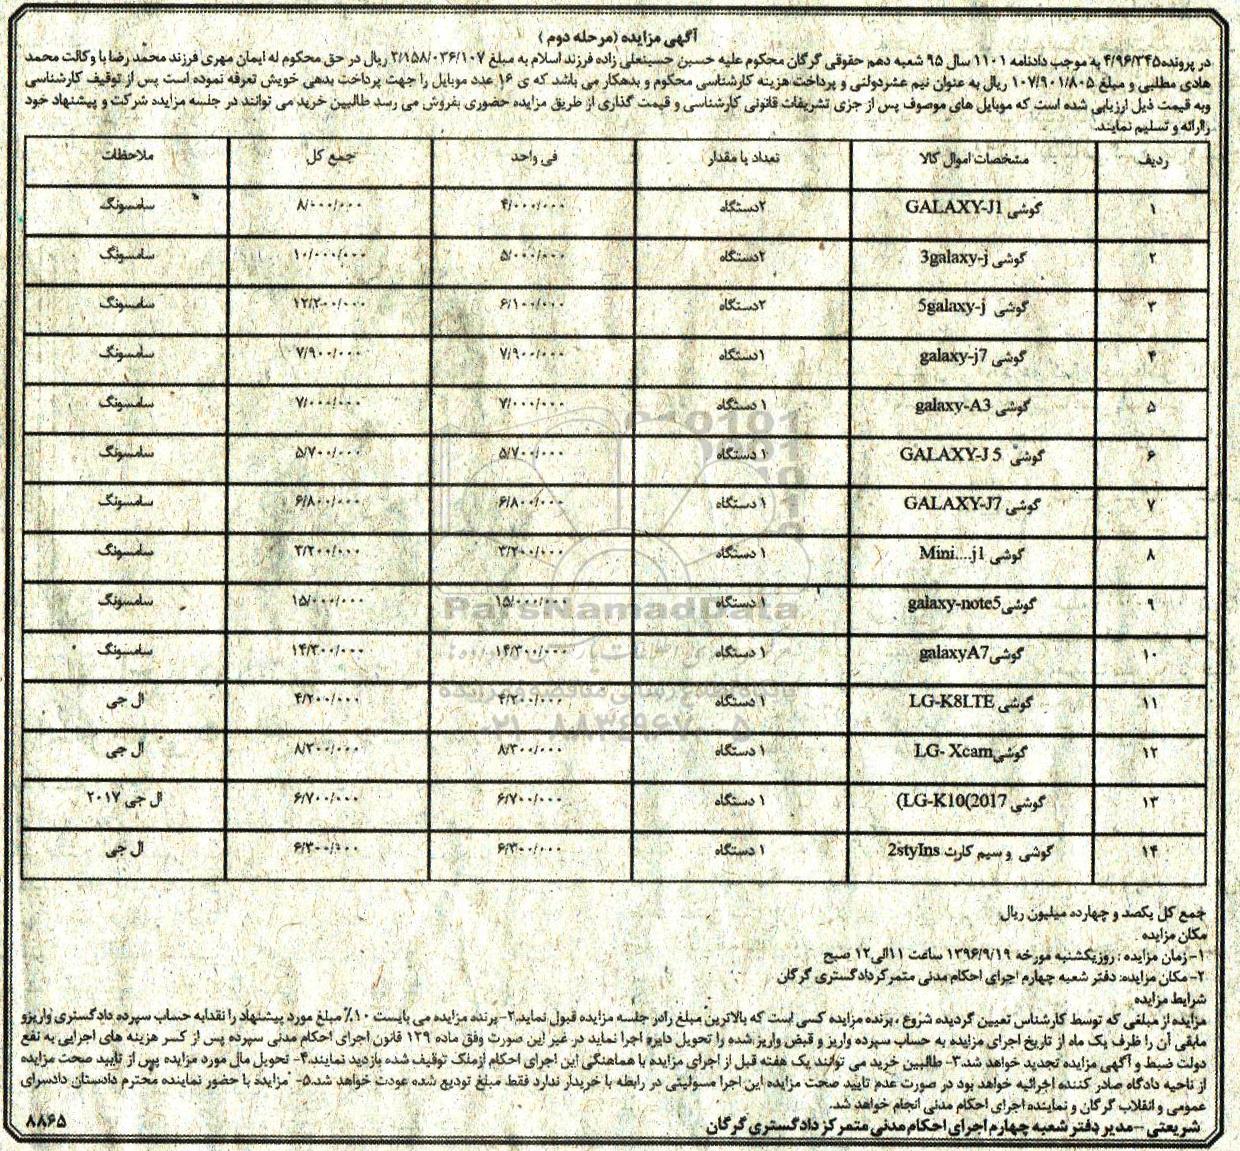 آگهی مزایده (مرحله دوم)
در پرونده۴/۹۶/۳۴۵ به موجب دادنامه ۱۱۰۱ سال ۹۵ شعبه دهم حقوقی گرگان محکوم علیه حسین حسینعلی زاده فرزند اسلام به مبلغ ۲/۱۵۸/۰۳۶/۱۰۷ ریال در حق محکوم له ایمان مهری فرزند محمد رضا با وکالت محمد
هادی مطلبی و مبلغ ۱۰۷/۹۰۱/۸۰۵ ریال به عنوان نیم عشردولتی و پرداخت هزینه کارشناسی محکوم و بدهکار می باشد که ی ۱۶ عدد موبایل را جهت پرداخت بدهی خویش تعرفه نموده است پس از توقیف کارشناسی
وبه قیمت ذیل ارزیابی شده است که موبایل های موصوف پس از جزی تشریفات قانونی کارشناسی و قیمت گذاری از طریق مزایده حضوری بفروش می رسد طالبین خرید می توانند در جلسه مزایده شرکت و پیشنهاد خود
راارائه و تسلیم نمایند.
ردیف مشخصات اموال کالا تعداد یا مقدار فی واحد جمع کل ملاحظات
۱ گوشی GALAXY-J1 ۲دستگاه ۴/۰۰۰/۰۰۰ ۸/۰۰۰/۰۰۰ سامسونگ
۲ گوشی 3galaxy-j ۲دستگاه ۵/۰۰۰/۰۰۰ ۱۰/۰۰۰/۰۰۰ سامسونگ
۳ گوشی 5galaxy-j ۲دستگاه ۶/۱۰۰/۰۰۰ ۱۲/۲۰۰/۰۰۰ سامسونگ
۴ گوشی galaxy-j7 ۱دستگاه ۷/۹۰۰/۰۰۰ ۷/۹۰۰/۰۰۰ سامسونگ
۵ گوشی galaxy-A3 ۱ دستگاه ۷/۰۰۰/۰۰۰ ۷/۰۰۰/۰۰۰ سامسونگ
۶ گوشی GALAXY-J 5 ۱ دستگاه ۵/۷۰۰/۰۰۰ ۵/۷۰۰/۰۰۰ سامسونگ
۷ گوشی GALAXY-J7 ۱ دستگاه ۶/۸۰۰/۰۰۰ ۶/۸۰۰/۰۰۰ سامسونگ
۸ گوشی Mini....j1 ۱ دستگاه ۳/۲۰۰/۰۰۰ ۳/۲۰۰/۰۰۰ سامسونگ
۹ گوشیgalaxy-note5 ۱ دستگاه ۱۵/۰۰۰/۰۰۰ ۱۵/۰۰۰/۰۰۰ سامسونگ
۱۰ گوشیgalaxyA7 ۱ دستگاه ۱۴/۳۰۰/۰۰۰ ۱۴/۳۰۰/۰۰۰ سامسونگ
۱۱ گوشی LG-K8LTE ۱ دستگاه ۴/۲۰۰/۰۰۰ ۴/۲۰۰/۰۰۰ ال جی
۱۲ گوشیLG- Xcam ۱ دستگاه ۸/۳۰۰/۰۰۰ ۸/۳۰۰/۰۰۰ ال جی
۱۳ گوشی LG-K10(2017) ۱ دستگاه ۶/۷۰۰/۰۰۰ ۶/۷۰۰/۰۰۰ ال جی ۲۰۱۷
۱۴ گوشی و سیم کارت 2styIns ۱ دستگاه ۶/۳۰۰/۰۰۰ ۶/۳۰۰/۰۰۰ ال جی
ParsNamadData
پایگاه اطلاع رسانی مناقصه و مزایده
۰۲۱-۸۸۳۴۹۶۷۰-۵
جمع کل یکصد و چهارده میلیون ریال
مکان مزایده
۱- زمان مزایده : روزیکشنبه مورخه ۱۳۹۶/۹/۱۹ ساعت ۱۱الی۱۲ صبح
۲- مکان مزایده: دفتر شعبه چهارم اجرای احکام مدنی متمرکزدادگستری گرگان
شرایط مزایده
مزایده از مبلغی که توسط کارشناس تعیین گردیده شروع ، برنده مزایده کسی است که بالاترین مبلغ رادر جلسه مزایده قبول نماید.۲- برنده مزایده می بایست ۱۰٪ مبلغ مورد پیشنهاد را نقدابه حساب سپرده دادگستری واریزو
مابقی آن را ظرف یک ماه از تاریخ اجرای مزایده به حساب سپرده واریز و قبض واریز شده را تحویل دایره اجرا نماید در غیر این صورت وفق ماده ۱۲۹ قانون اجرای احکام مدنی سپرده پس از کسر هزینه های اجرایی به نفع
دولت ضبط و آگهی مزایده تجدید خواهد شد.۳- طالبین خرید می توانند یک هفته قبل از اجرای مزایده با هماهنگی این اجرای احکام ازملک توقیف شده بازدید نمایند.۴- تحویل مال مورد مزایده پس از تایید صحت مزایده
از ناحیه دادگاه صادر کننده اجرائیه خواهد بود در صورت عدم تایید صحت مزایده این اجرا مسولیتی در رابطه با خریدار ندارد فقط مبلغ تودیع شده عودت خواهد شد.۵- مزایده با حضور نماینده محترم دادستان دادسرای
عمومی و انقلاب گرگان و نماینده اجرای احکام مدنی انجام خواهد شد.
شریعتی – مدیر دفتر شعبه چهارم اجرای احکام مدنی متمرکز دادگستری گرگان ۸۸۶۵